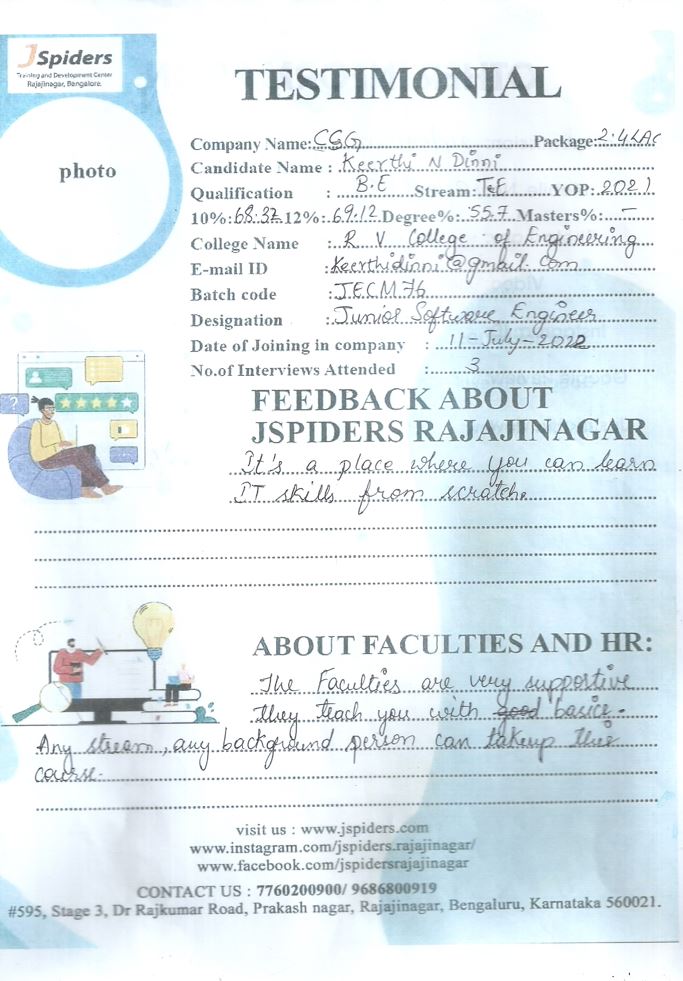 JSpiders
Training and Development Center
Rajajinagar, Bangalore.
TESTIMONIAL
photo
Company Name: CGG Package: 2.4LAC
Candidate Name : Keerthi N Dinni
Qualification : B.E Stream: T.E YOP: 2021
10%: 68.32 12%: 69.12 Degree%: 55.7 Masters%: -
College Name : R V College of Engineering
E-mail ID : keerthidinni@gmail.com
Batch code : JECM76
Designation : Junior Software Engineer
Date of Joining in company : 11-July-2022
No.of Interviews Attended : 3
FEEDBACK ABOUT
JSPIDERS RAJAJINAGAR
It's a place where you can learn
IT skills from scratch.
?
ABOUT FACULTIES AND HR:
The Faculties are very supportive
they teach you with good basics.
Any stream, any background person can takeup this
course.
visit us : www.jspiders.com
www.instagram.com/jspiders.rajajinagar/
www.facebook.com/jspidersrajajinagar
CONTACT US : 7760200900/ 9686800919
#595, Stage 3, Dr Rajkumar Road, Prakash nagar, Rajajinagar, Bengaluru, Karnataka 560021.